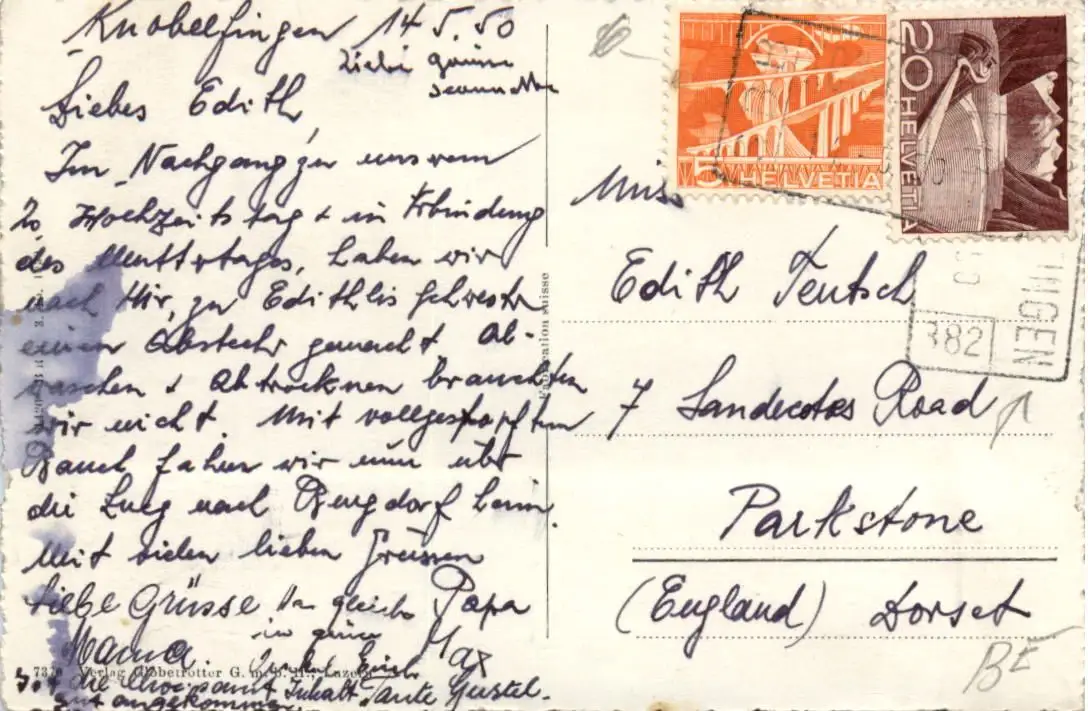 Knobelfingen 14 5.50
Liebes Edith,
Im Nachgang zu unserem
20 Hochzeitstag + in Vbindung
des Muttertages, haben wir
nach zu Edithlis Schwester
einen Abstecher gemacht. Ab-
waschen + Abtrocknen brauchten
wir nicht. Mit vollgestopften
Bauch fahren wir nun über
die Lueg nach Burgdorf heim.
Mit vielen lieben Grüssen
Liebe Grüsse Papa
Mama. Max
Tante Gustel.
gut angekommen
7370 Verlag Globetrotter G. m. b. H., Luzern
Fabrication suisse
5 HELVETIA
20 HELVETIA
INGEN
382
Miss
Edith Teutsch
7 Sandecotes Road
Parkstone
(England) Dorset
BE